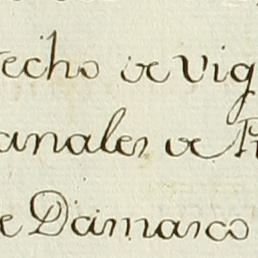 echo de vig
anales de
e Damasco